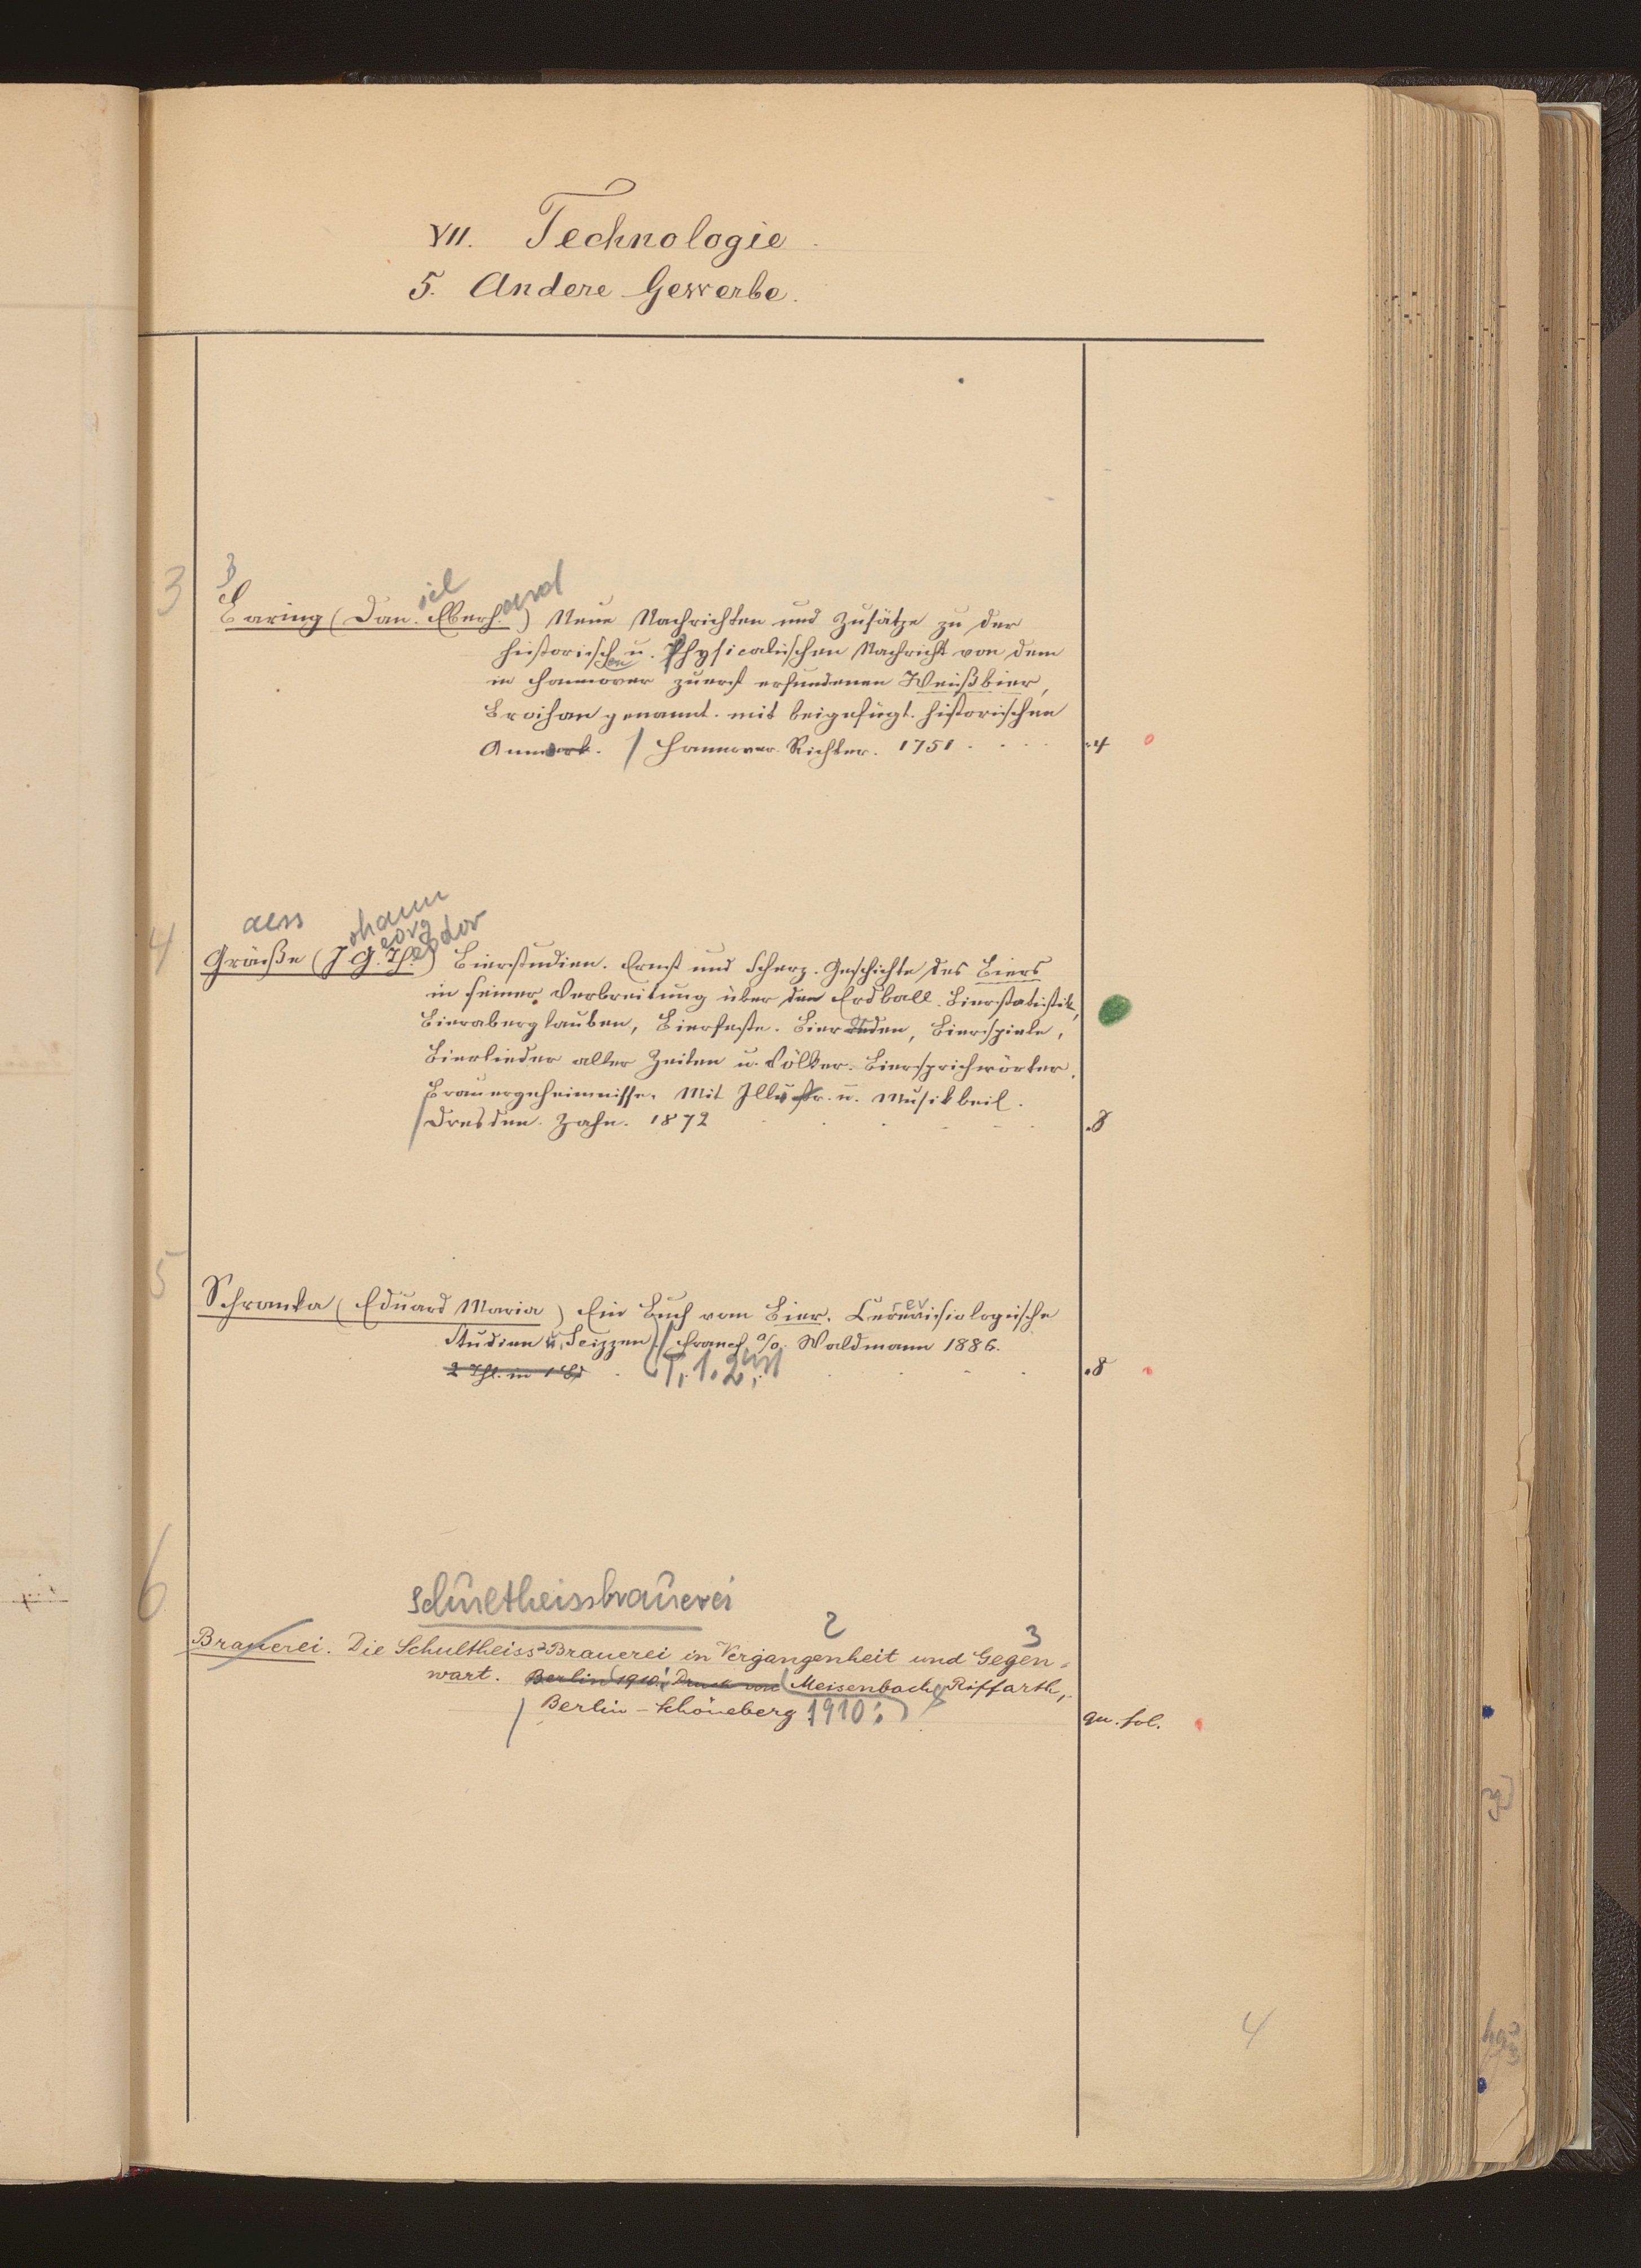 VII. Technologie.
5. Andere Gewerbe.
3
3
iel
ard
Baring (Dan. Eberh.) Neue Nachrichten und Zusätze zu der
historisch u. Physicalischen Nachricht von dem
en
in Hannover zuerst erfundenen Weißbier,
Broihan genannt. mit beigefügt. historischen
Anmerk. / Hannover. Richter. 1751 .4
4
aess
ohann
eorg
eodor
Gräße (J G. Th.) Bierstudien. Ernst und Scherz. Geschichte des Biers
in seiner Verbreitung über den Erdball. Bierstatistik,
Bieraberglauben, Bierfeste. Bierorden, Bierspiele,
Bierlieder aller Zeiten u. Völker. Biersprichwörter.
Brauergeheimnisse. Mit Illustr. u. Musikbeil.
/ Dresden. Zahn. 1872 .8
5
Schranka (Eduard Maria) Ein Buch vom Bier. Cerevisiologische
ev
Studien u. Scizzen / Francf. a/O. Waldmann 1886.
2 Thl. in 1 Bd T. 1. 2. .8
6
Schultheissbrauerei
2 3
Brauerei. Die Schultheiss-Brauerei in Vergangenheit und Gegen-
wart. Berlin 1910. Druck von Meisenbach Riffarth,
/ Berlin-Schöneberg 1910. qu. fol.
4